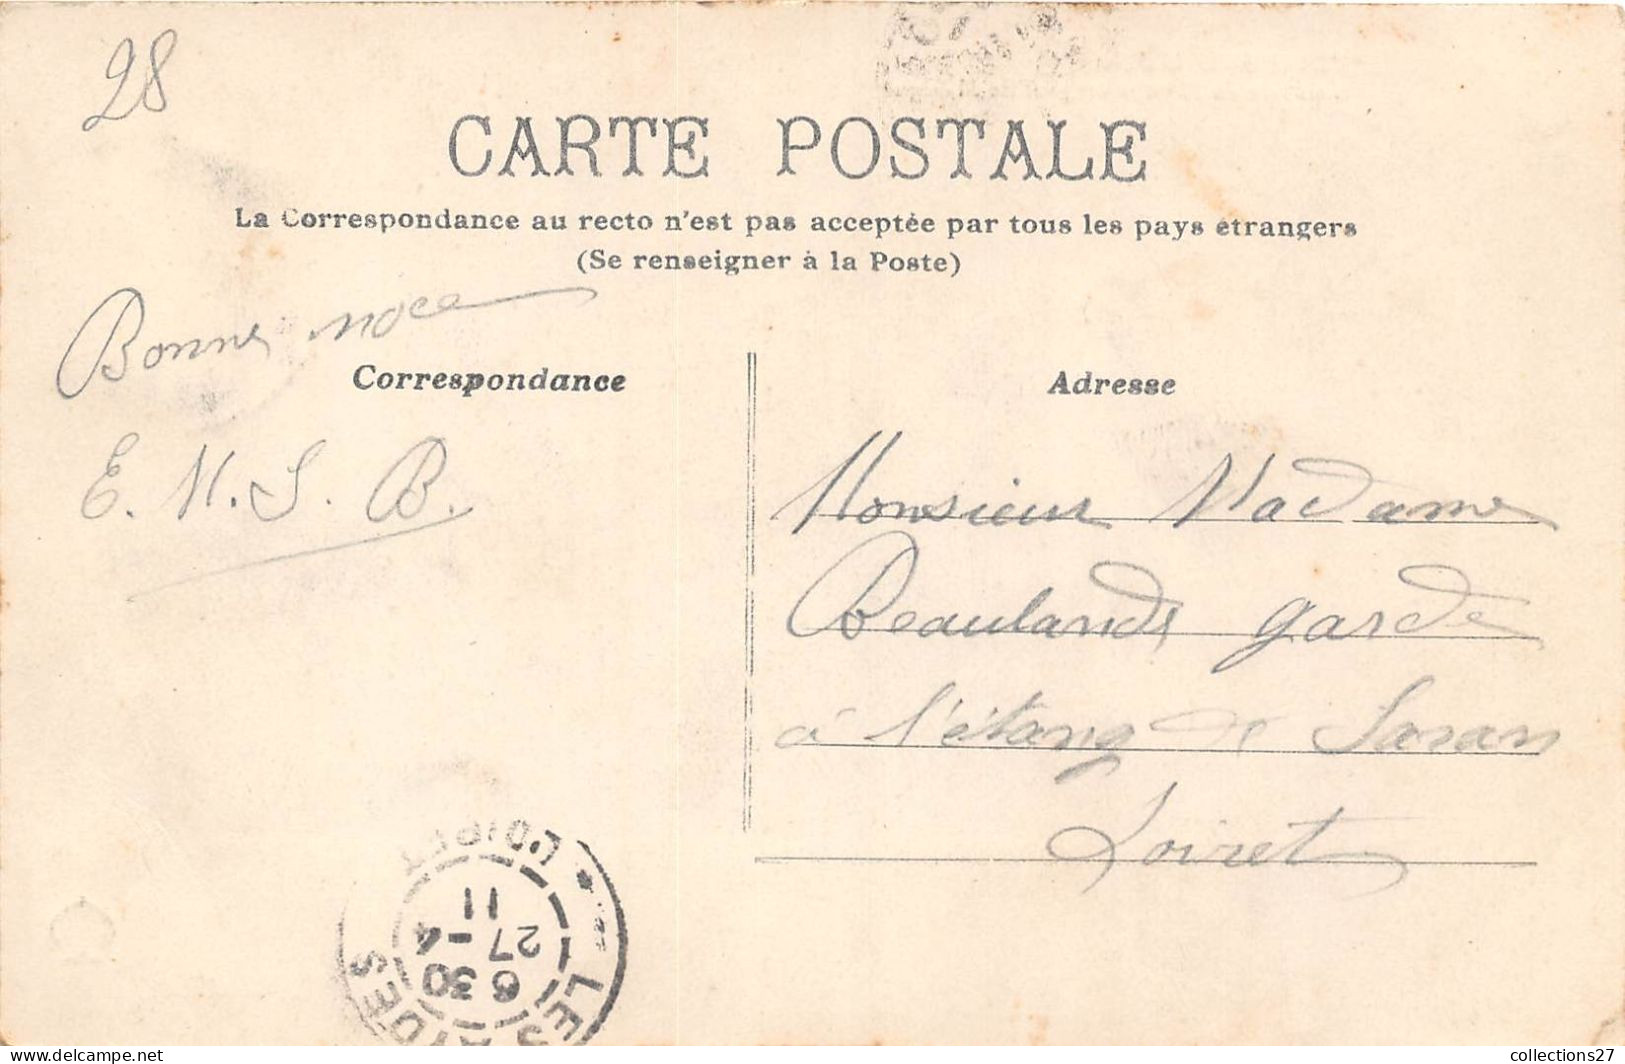 28
CARTE POSTALE
La Correspondance au recto n'est pas acceptée par tous les pays étrangers
(Se renseigner à la Poste)
Bonne noce
Correspondance
E. M. S. B.
Adresse
Monsieur Madame
Beaulande garde
à l'étang de Saran
Loiret
LES AYDES
6 30
27 - 4
11
LOIRET
collections27